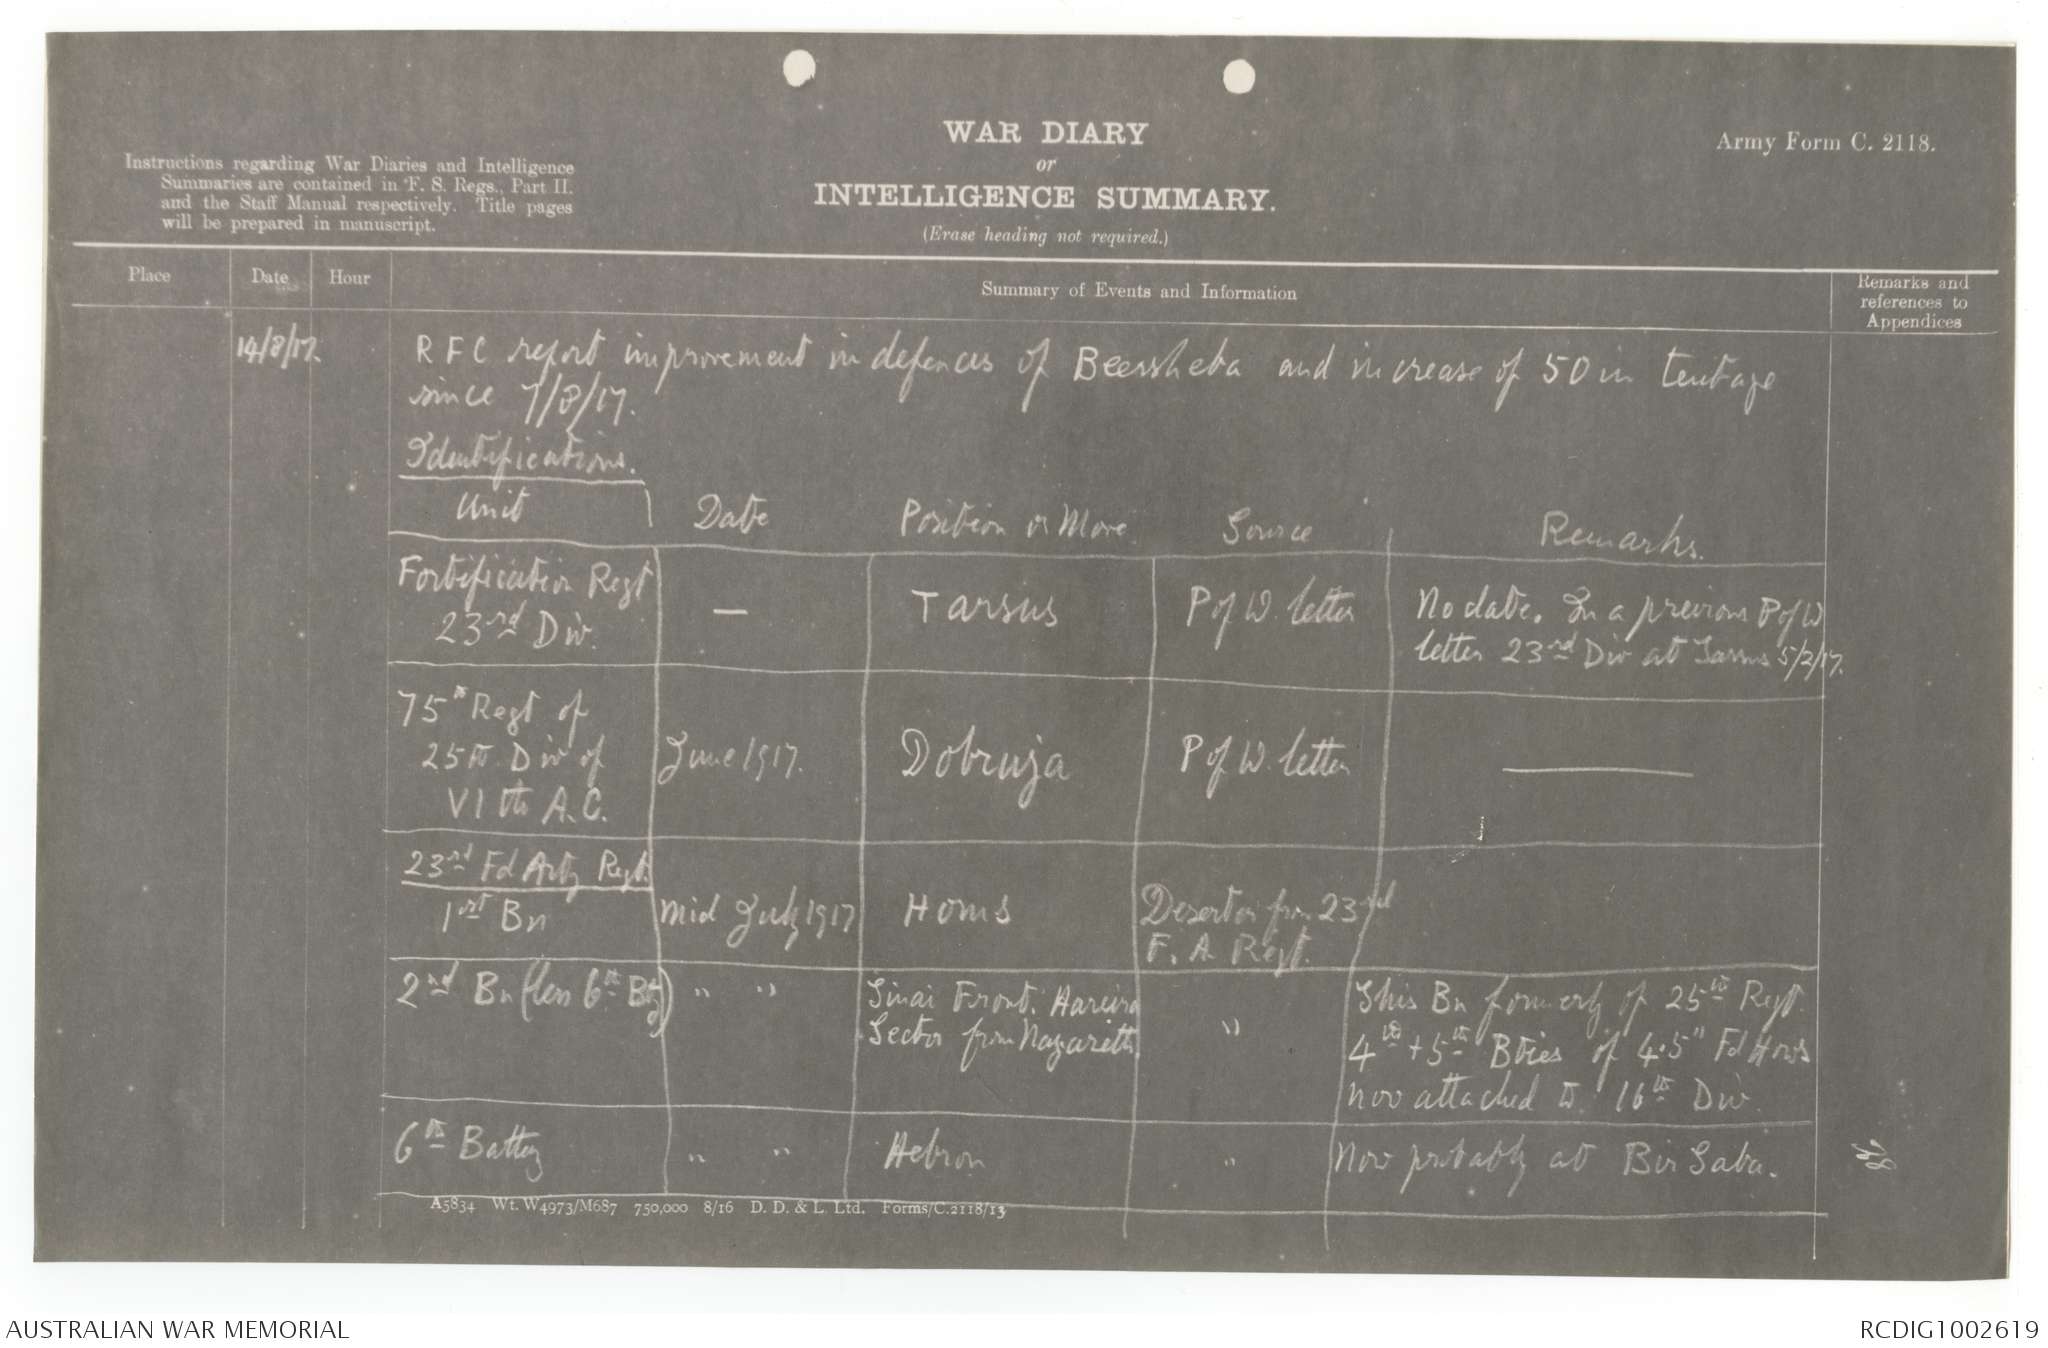 WAR DIARY
or
INTELLIGENCE SUMMARY.
(Erase heading not required.)
Army Form C. 2118.
Instructions regarding War Diaries and Intelligence
Summaries are contained in F. S. Regs., Part II.
and the Staff Manual respectively. Title pages
will be prepared in manuscript.
Place
Date
Hour
Summary of Events and Information
Remarks and
references to
Appendices
14/8/17.
R F C report improvement in defences of Beersheba and increase of 50 in tentage
since 7/8/17.
Identifications.
Unit Date Position or Move Source Remarks.
Fortification Regt
23rd Div.
—
Tarsus
P of W. letter
No date. In a previous P of W
letter 23rd Div at Tarsus 5/2/17.
75th Regt of
25th Div of
VI th A.C.
June 1917.
Dobruja
P of W. letter
23rd Fd Arty Regt.
1st Bn
Mid July 1917
Homs
Deserter from 23rd
F. A. Regt.
2nd Bn (less 6th Bty)
" "
Sinai Front. Hareira
Sector from Nazareth
"
This Bn formerly of 25th Regt.
4th + 5th Bties of 4.5" Fd Hows
now attached to 16th Div.
6th Battery
" "
Hebron
"
Now probably at Bir Saba.
A5834 Wt. W4973/M687 750,000 8/16 D. D. & L. Ltd. Forms/C.2118/13
AUSTRALIAN WAR MEMORIAL
RCDIG1002619